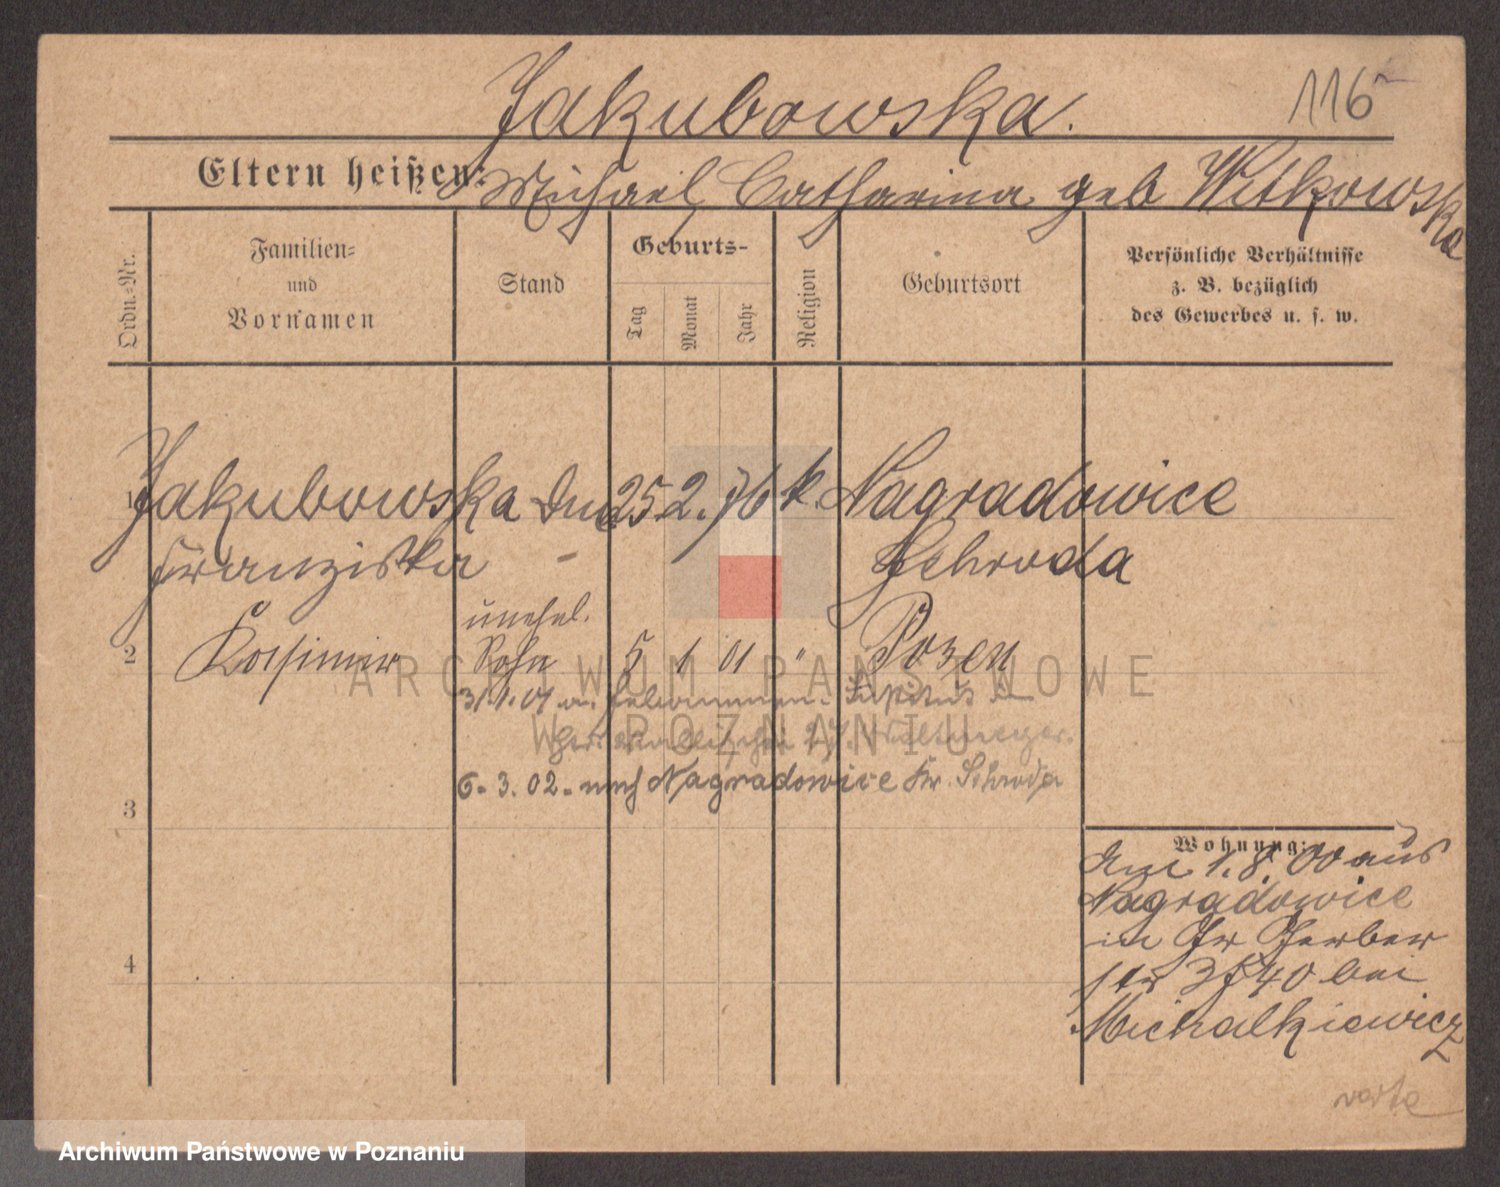 Jakubowska.
116
Eltern heißen: Michael, Catharina geb Witkowska
Ordn.=Nr.
Familien=
und
Vornamen
Stand
Geburts=
Tag
Monat
Jahr
Religion
Geburtsort
Persönliche Verhältnisse
z. B. bezüglich
des Gewerbes u. s. w.
1 Jakubowska 25 2. 76 k. Nagradowice
Franziska Schroda
unehel.
2 Kasimir Sohn 5 1 01 " Posen
31.1.01
6. 3. 02. nach Nagradowice Kr. Schroda
3
Wohnung:
Am 1. 8. 00 aus
Nagradowice
in Gr Gerber
str 40 bei
Michalkiewicz
4
verte
ARCHIWUM PAŃSTWOWE
W POZNANIU
Archiwum Państwowe w Poznaniu